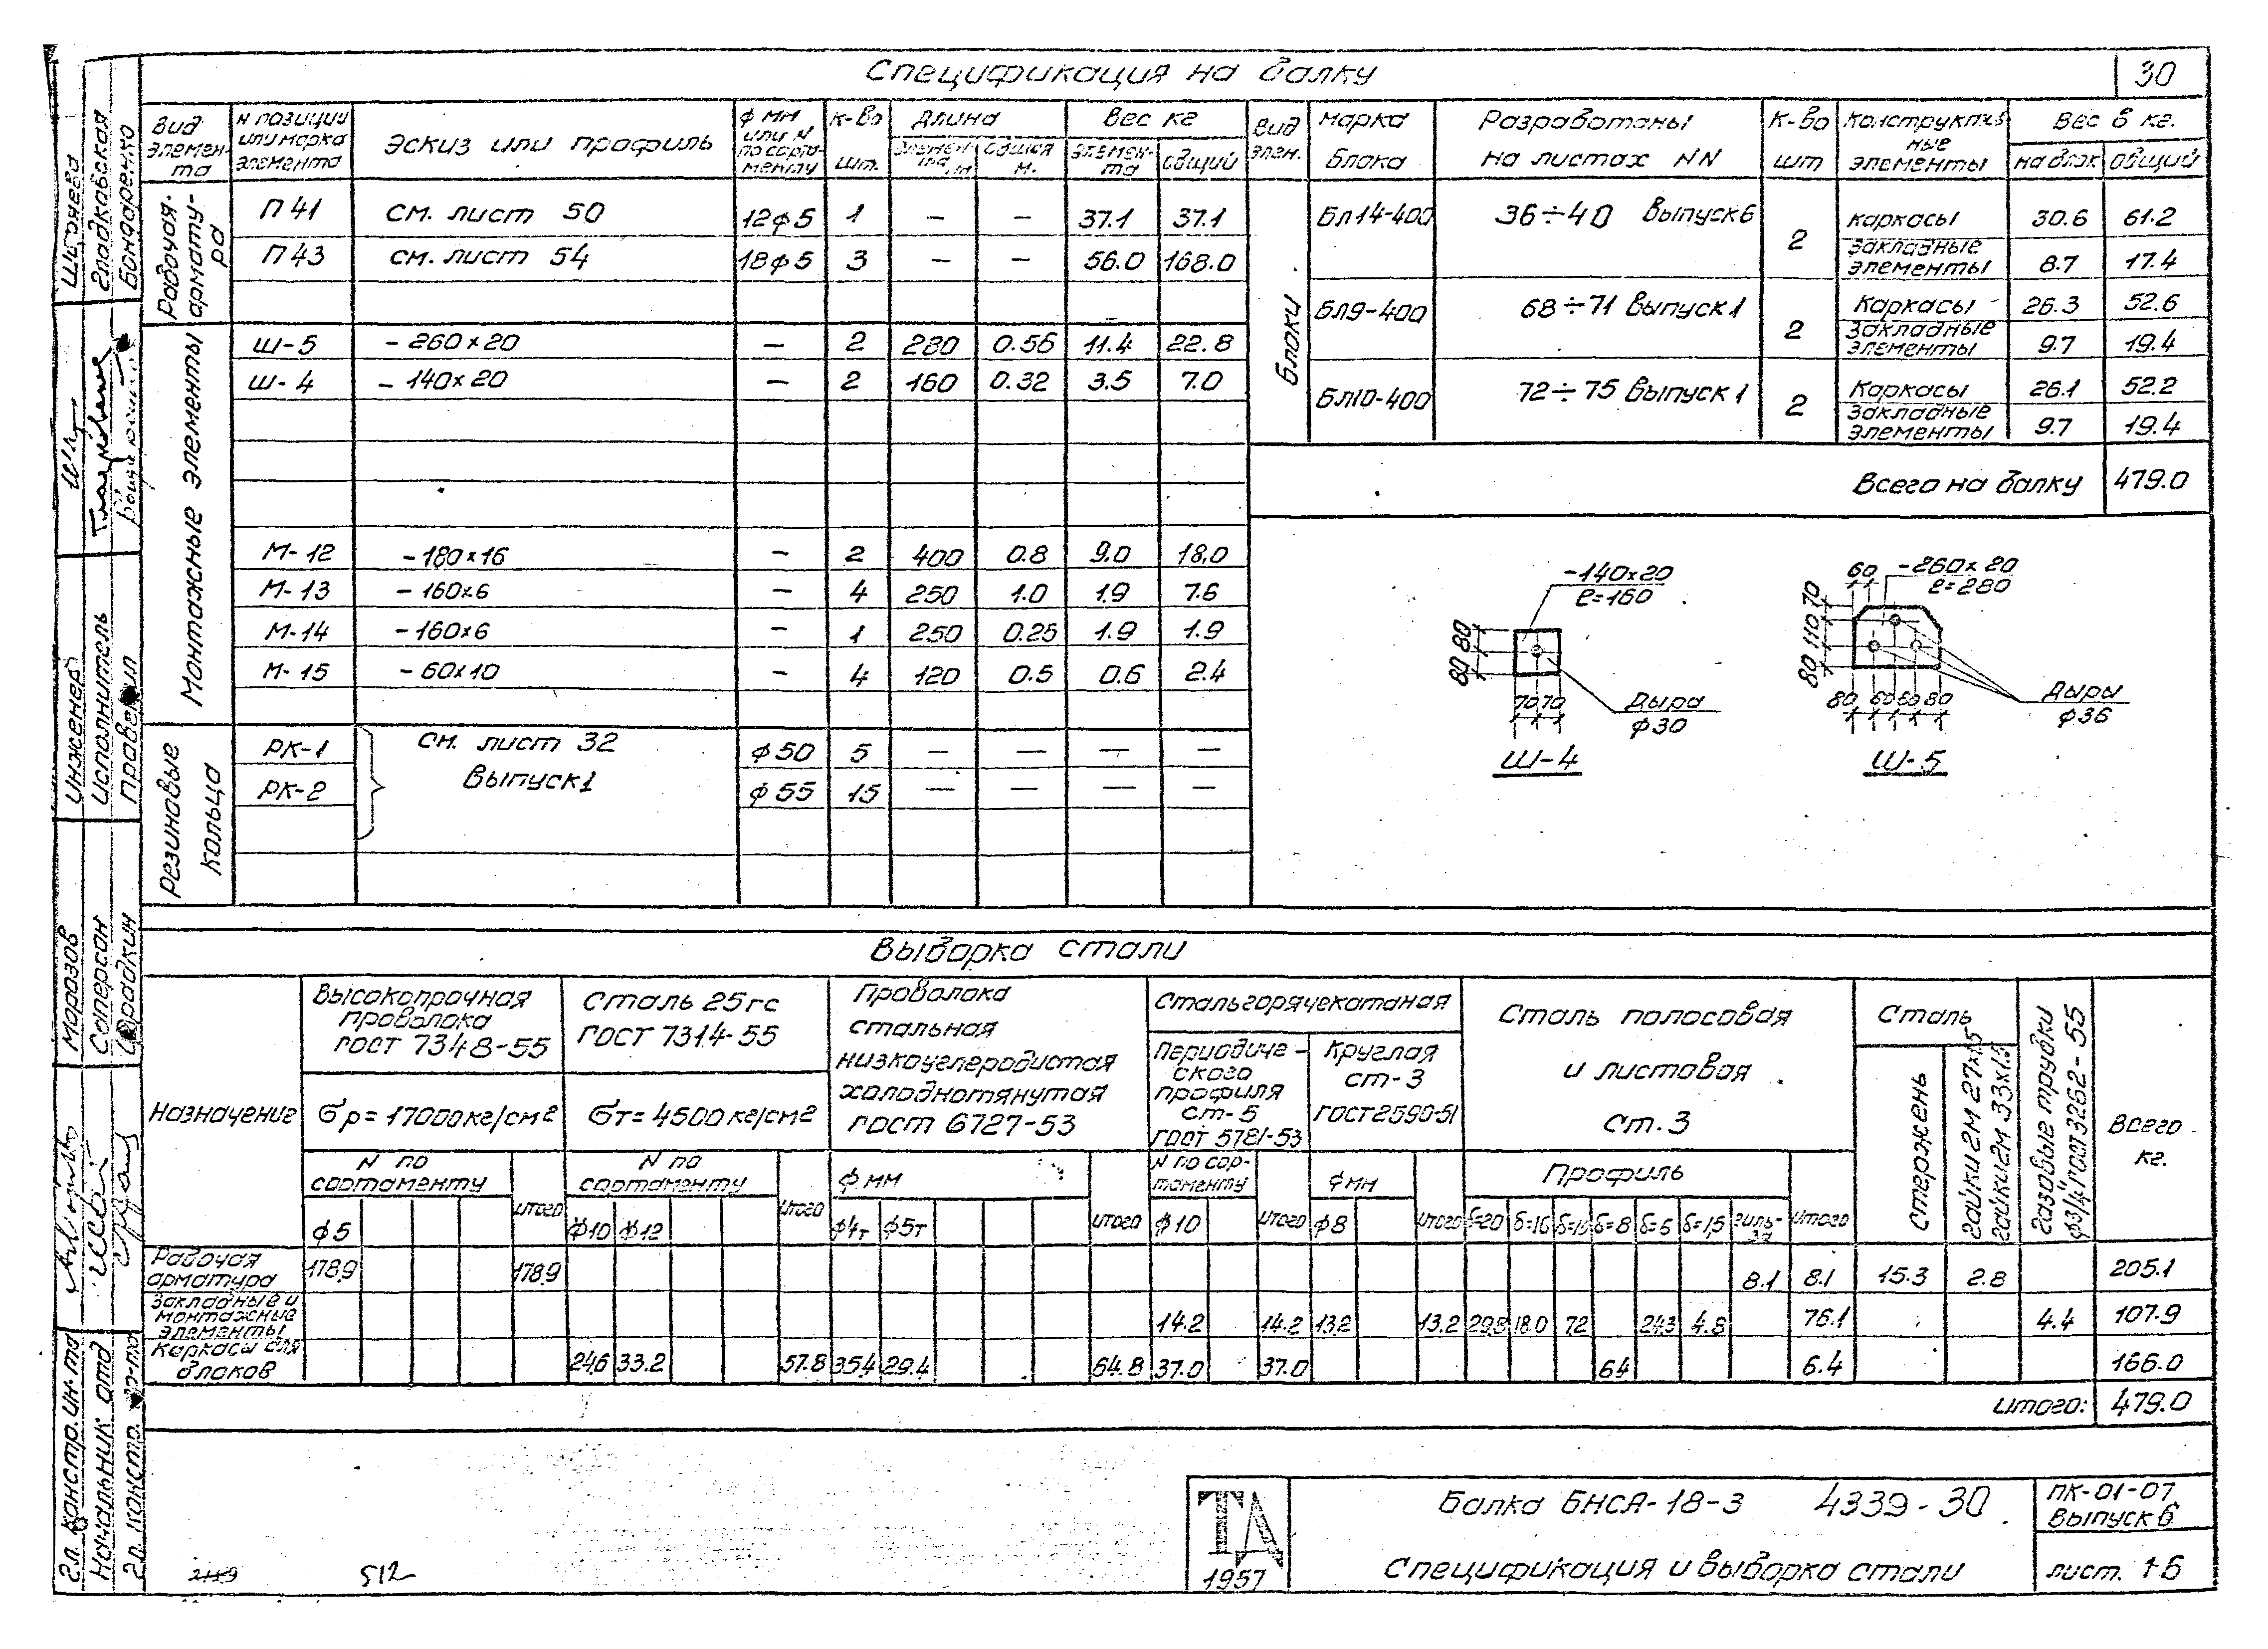 Спецификация на балку
30
Вид элемента | N позиции или марка элемента | Эскиз или профиль | ф мм или N по сортаменту | К-во шт. | Длина | Вес кг
общая м. | элемента | общий
Рабочая арматура
П 41 | см. лист 50 | 12ф5 | 1 | — | — | 37.1 | 37.1
П 43 | см. лист 54 | 18ф5 | 3 | — | — | 56.0 | 168.0
Монтажные элементы
Ш-5 | - 260×20 | — | 2 | 280 | 0.56 | 11.4 | 22.8
Ш-4 | - 140×20 | — | 2 | 160 | 0.32 | 3.5 | 7.0
М-12 | - 180×16 | — | 2 | 400 | 0.8 | 9.0 | 18.0
М-13 | - 160×6 | — | 4 | 250 | 1.0 | 1.9 | 7.6
М-14 | - 160×6 | — | 1 | 250 | 0.25 | 1.9 | 1.9
М-15 | - 60×10 | — | 4 | 120 | 0.5 | 0.6 | 2.4
Резиновые кольца
РК-1 | см. лист 32 | ф 50 | 5 | — | — | — | —
РК-2 | Выпуск 1 | ф 55 | 15 | — | — | — | —
Вид элем. | Марка Блока | Разработаны на листах NN | К-во шт | Конструктивные элементы | Вес в кг.
на блок | общий
Блоки
Бл14-400 | 36÷40 Выпуск 6 | 2 | каркасы | 30.6 | 61.2
закладные элементы | 8.7 | 17.4
Бл9-400 | 68÷71 Выпуск 1 | 2 | Каркасы | 26.3 | 52.6
закладные элементы | 9.7 | 19.4
Бл10-400 | 72÷75 Выпуск 1 | 2 | Каркасы | 26.1 | 52.2
закладные элементы | 9.7 | 19.4
Всего на балку | 479.0
-140×20
ℓ=160
80 80
70 70
Дыра
ф30
Ш-4
60
-260×20
ℓ=280
70
110
80
80 60 60 80
Дыры
ф36
Ш-5
Выборка стали
Назначение
Высокопрочная проволока ГОСТ 7348-55
σр=17000кг/см2
N по сортаменту
ф5 | итого
Сталь 25ГС ГОСТ 7314-55
σт=4500кг/см2
N по сортаменту
ф10 | ф12 | итого
Проволока стальная низкоуглеродистая холоднотянутая ГОСТ 6727-53
ф мм
ф4т | ф5т | итого
Сталь горячекатаная
Периодического профиля ст-5 ГОСТ 5781-53
N по сортаменту
ф10 | итого
Круглая ст-3 ГОСТ 2590-51
ф мм
ф8 | итого
Сталь полосовая и листовая Ст.3
Профиль
δ=20 | δ=16 | δ=10 | δ=8 | δ=6 | δ=1,5 | гильза | итого
Сталь
стержень
гайки 2М 27×1.5
гайки 2М 33×1.5
газовые трубки
ф3/4" ГОСТ 3262-55
Всего кг.
Рабочая арматура | 178.9 | 178.9 | 8.1 | 8.1 | 15.3 | 2.8 | 205.1
Закладные и монтажные элементы | 14.2 | 14.2 | 13.2 | 13.2 | 29.8 | 18.0 | 7.2 | 24.3 | 4.8 | 76.1 | 4.4 | 107.9
Каркасы для блоков | 24.6 | 33.2 | 57.8 | 35.4 | 29.4 | 64.8 | 37.0 | 37.0 | 6.4 | 6.4 | 166.0
Итого: | 479.0
ТД
1957
Балка БНСЯ-18-3 4339-30
Спецификация и выборка стали
ПК-01-07
Выпуск 6
лист. 16
512
Гл. констр. ин-та | Морозов
Начальник отд | Саперсон
Гл. констр.
Инженер
Исполнитель | Гладковская
Проверил | Бондаренко